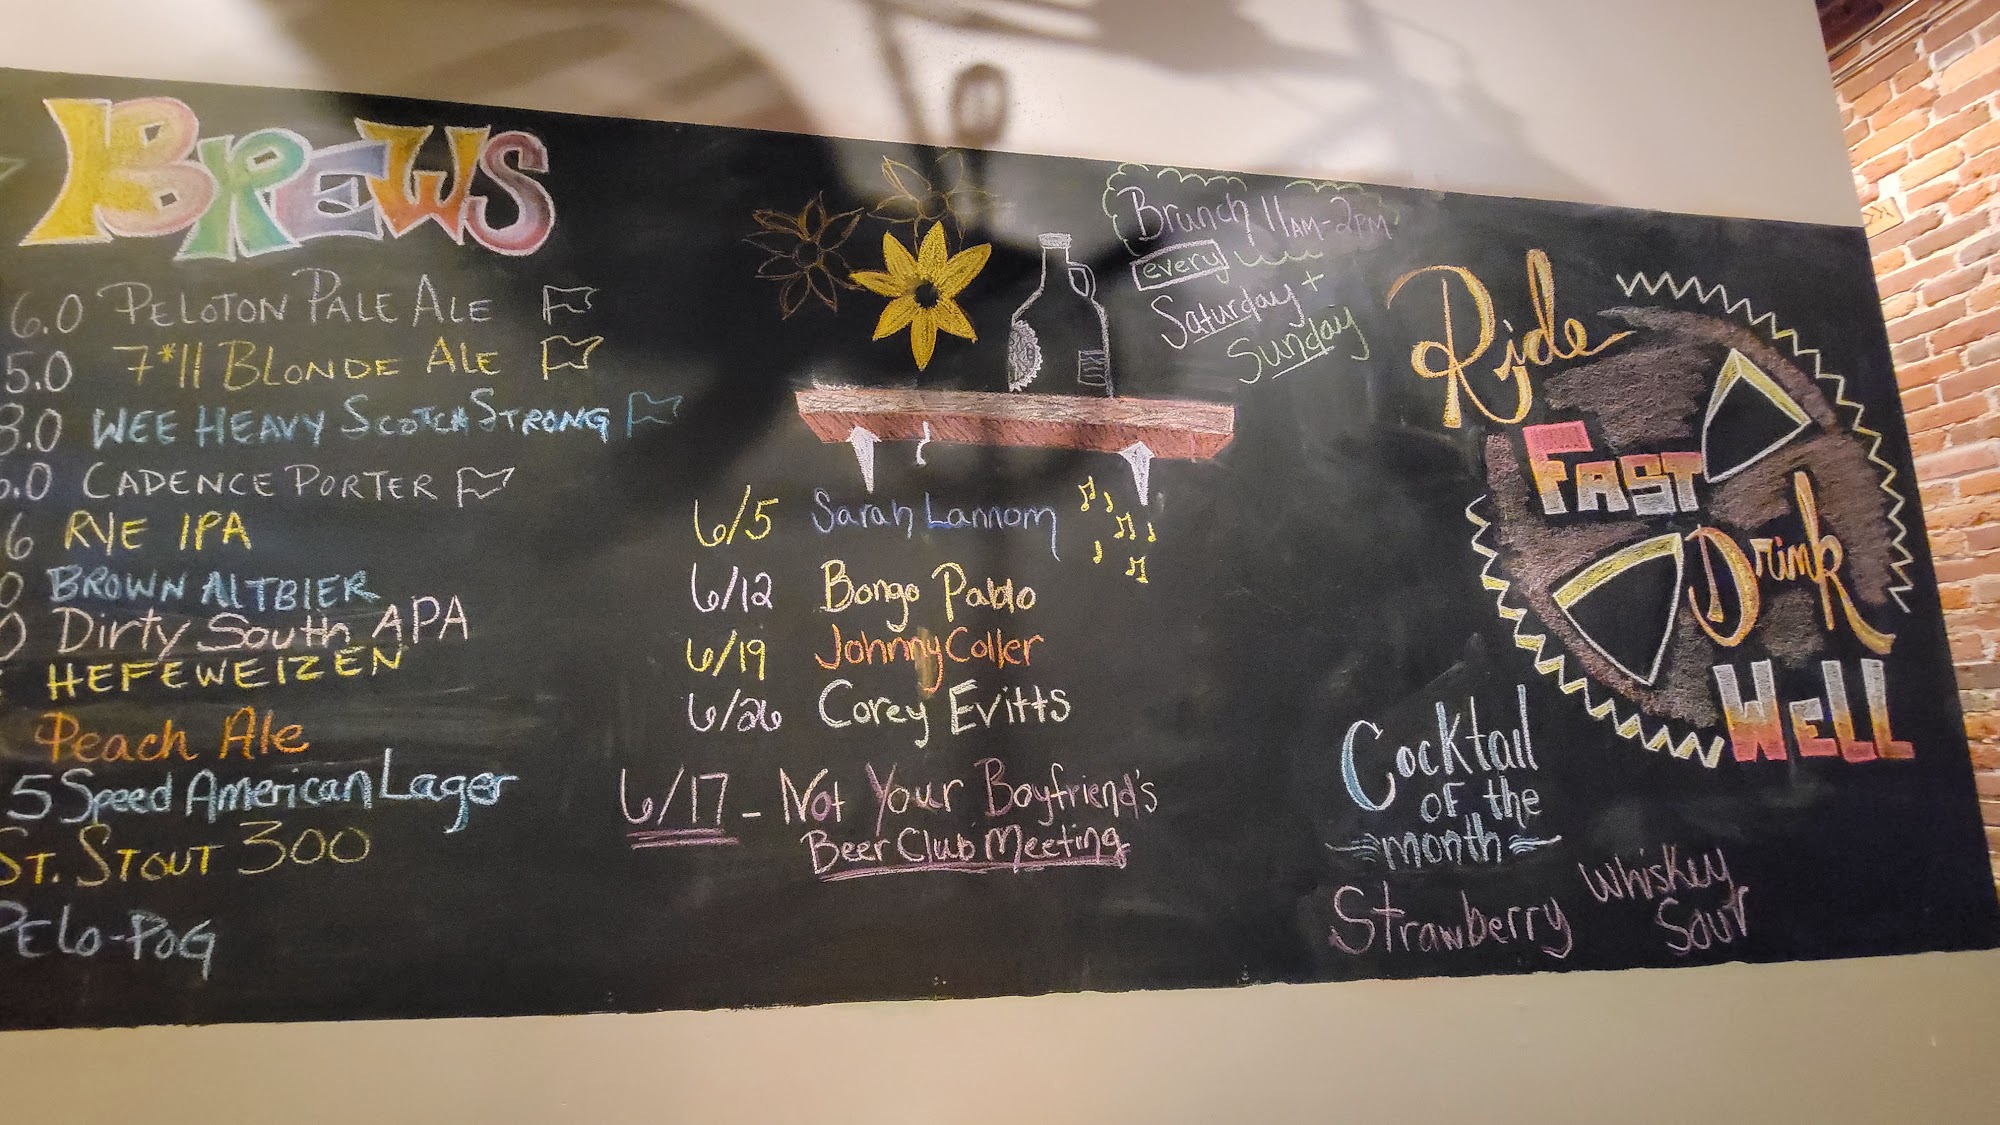 BREWS
6.0 PELOTON PALE ALE
5.0 7*11 BLONDE ALE
8.0 WEE HEAVY SCOTCH STRONG
6.0 CADENCE PORTER
6 RYE IPA
0 BROWN ALTBIER
0 Dirty South APA
HEFEWEIZEN
Peach Ale
5 Speed American Lager
ST. STOUT 300
PELO-POG
Brunch 11AM-2PM
every
Saturday +
Sunday
6/5 Sarah Lannom
6/12 Bongo Pablo
6/19 Johnny Coller
6/26 Corey Evitts
6/17 - Not Your Boyfriend's
Beer Club Meeting
Ride
FAST
Drink
WELL
Cocktail
OF the
month
Strawberry Whiskey
Sour